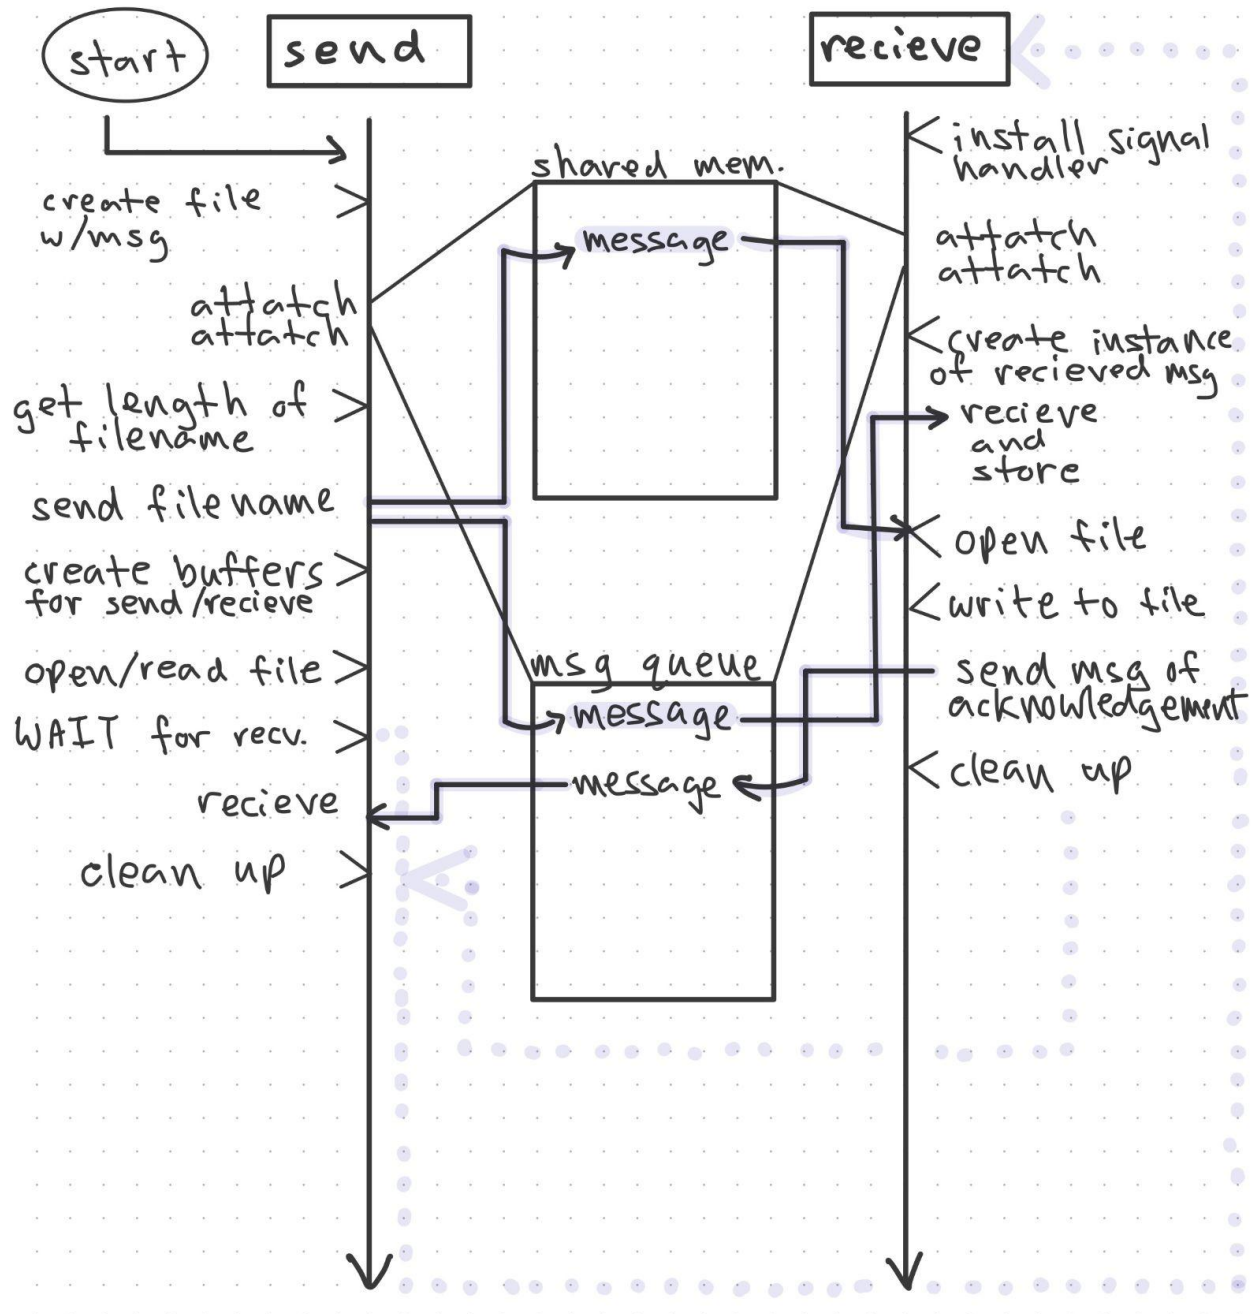 start
send
recieve
create file
w/msg
attatch
attatch
get length of
filename
send filename
create buffers
for send/recieve
open/read file
WAIT for recv.
recieve
clean up
shared mem.
message
msg queue
message
message
install signal
handler
attatch
attatch
create instance
of recieved msg
recieve
and
store
open file
write to file
send msg of
acknowledgement
clean up